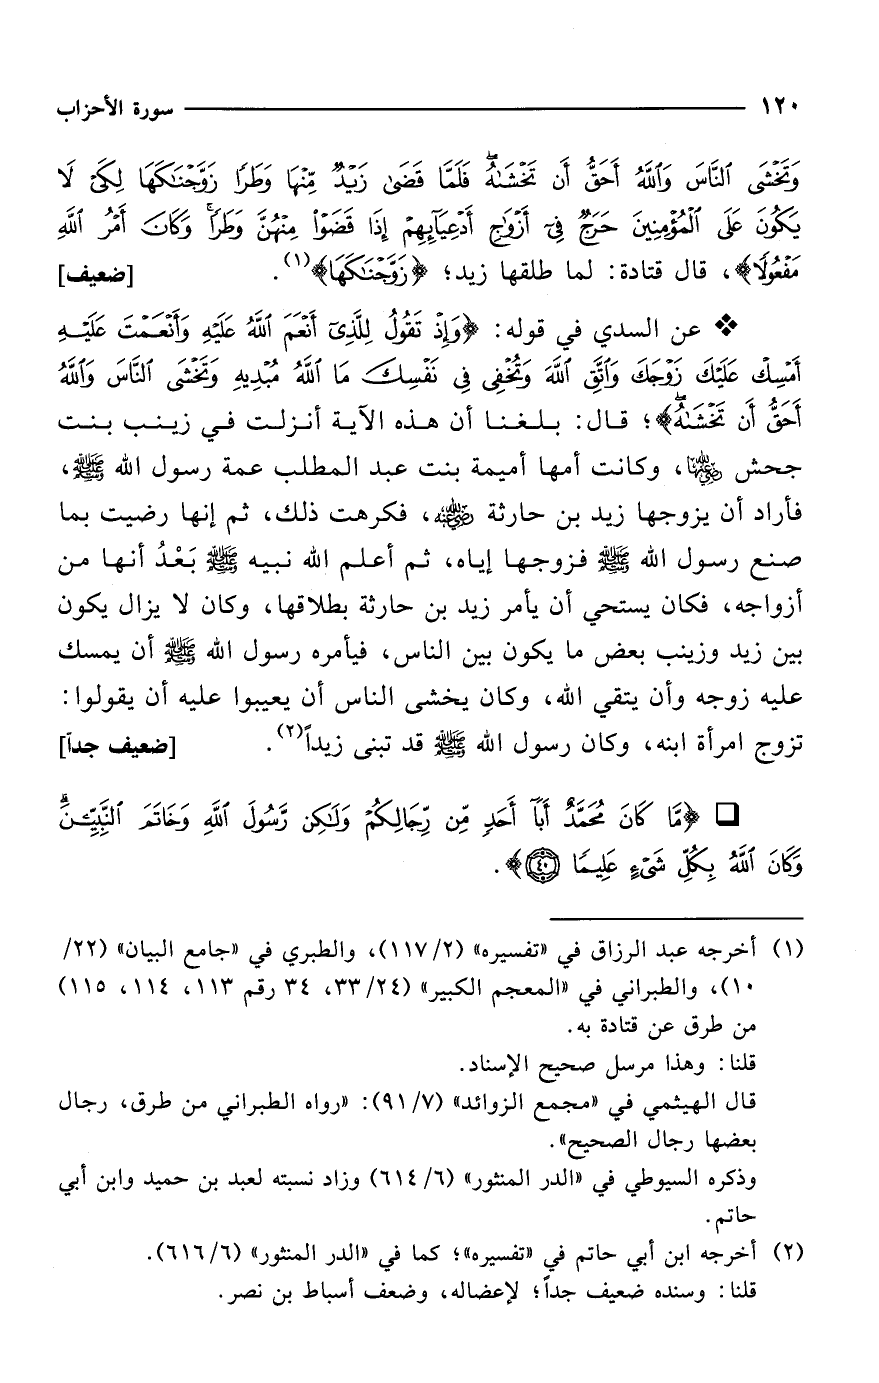 ١٢٠ سورة الأحزاب
وَتَخْشَى ٱلنَّاسَ وَٱللَّهُ أَحَقُّ أَن تَخْشَىٰهُ ۖ فَلَمَّا قَضَىٰ زَيْدٌ مِّنْهَا وَطَرًا زَوَّجْنَٰكَهَا لِكَىْ لَا
يَكُونَ عَلَى ٱلْمُؤْمِنِينَ حَرَجٌ فِىٓ أَزْوَٰجِ أَدْعِيَآئِهِمْ إِذَا قَضَوْا۟ مِنْهُنَّ وَطَرًا ۚ وَكَانَ أَمْرُ ٱللَّهِ
مَفْعُولًا﴾، قال قتادة: لما طلقها زيد؛ ﴿زَوَّجْنَٰكَهَا﴾(١). [ضعيف]
❖ عن السدي في قوله: ﴿وَإِذْ تَقُولُ لِلَّذِىٓ أَنْعَمَ ٱللَّهُ عَلَيْهِ وَأَنْعَمْتَ عَلَيْهِ
أَمْسِكْ عَلَيْكَ زَوْجَكَ وَٱتَّقِ ٱللَّهَ وَتُخْفِى فِى نَفْسِكَ مَا ٱللَّهُ مُبْدِيهِ وَتَخْشَى ٱلنَّاسَ وَٱللَّهُ
أَحَقُّ أَن تَخْشَىٰهُ ۖ﴾؛ قال: بلغنا أن هذه الآية أنزلت في زينب بنت
جحش رضي الله عنها، وكانت أمها أميمة بنت عبد المطلب عمة رسول الله ﷺ،
فأراد أن يزوجها زيد بن حارثة رضي الله عنه، فكرهت ذلك، ثم إنها رضيت بما
صنع رسول الله ﷺ فزوجها إياه، ثم أعلم الله نبيه ﷺ بَعْدُ أنها من
أزواجه، فكان يستحي أن يأمر زيد بن حارثة بطلاقها، وكان لا يزال يكون
بين زيد وزينب بعض ما يكون بين الناس، فيأمره رسول الله ﷺ أن يمسك
عليه زوجه وأن يتقي الله، وكان يخشى الناس أن يعيبوا عليه أن يقولوا:
تزوج امرأة ابنه، وكان رسول الله ﷺ قد تبنى زيداً(٢). [ضعيف جداً]
❏ ﴿مَّا كَانَ مُحَمَّدٌ أَبَآ أَحَدٍ مِّن رِّجَالِكُمْ وَلَٰكِن رَّسُولَ ٱللَّهِ وَخَاتَمَ ٱلنَّبِيِّـۧنَ ۗ
وَكَانَ ٱللَّهُ بِكُلِّ شَىْءٍ عَلِيمًا ٤٠﴾.
(١) أخرجه عبد الرزاق في «تفسيره» (٢/ ١١٧)، والطبري في «جامع البيان» (٢٢/
١٠)، والطبراني في «المعجم الكبير» (٢٤/ ٣٣، ٣٤ رقم ١١٣، ١١٤، ١١٥)
من طرق عن قتادة به.
قلنا: وهذا مرسل صحيح الإسناد.
قال الهيثمي في «مجمع الزوائد» (٧/ ٩١): «رواه الطبراني من طرق، رجال
بعضها رجال الصحيح».
وذكره السيوطي في «الدر المنثور» (٦/ ٦١٤) وزاد نسبته لعبد بن حميد وابن أبي
حاتم.
(٢) أخرجه ابن أبي حاتم في «تفسيره»؛ كما في «الدر المنثور» (٦/ ٦١٦).
قلنا: وسنده ضعيف جداً؛ لإعضاله، وضعف أسباط بن نصر.